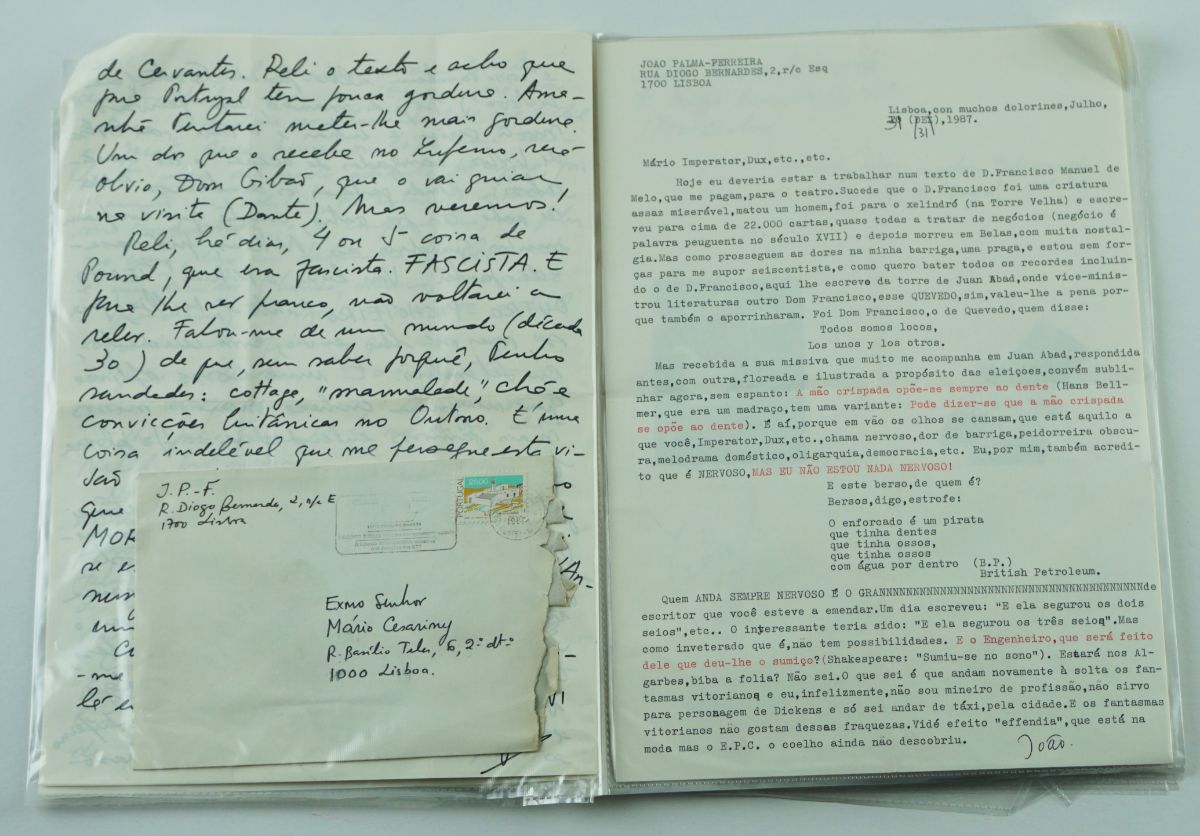 de Cervantes. Reli o texto e acho que
para Portugal tem pouca gordura. Ama-
nhã tentarei meter-lhe mais gordura.
Um dos que o recebe no Inferno, será
óbvio, Dom Gibão, que o vai guiar
na visita (Dante). Mas veremos!
Reli, há dias, 4 ou 5 coisas de
Pound, que era fascista. FASCISTA. E
para lhe ser franco, não voltarei a
reler. Falou-me de um mundo (década
30) de que, sem saber porquê, tenho
saudades: cottage, "marmelade", chá e
convicções britânicas no Outono. É uma
coisa indelével que me persegue esta vi-
são
J.P.-F.
R. Diogo Bernardes, 2, r/c E
1700 Lisboa
PORTUGAL
25$00
1987
Exmo Senhor
Mário Cesariny
R. Basílio Teles, 6, 2º dtº
1000 Lisboa.
JOAO PALMA-FERREIRA
RUA DIOGO BERNARDES,2,r/c Esq
1700 LISBOA
Lisboa,con muchos dolorines,Julho,
31 (DEZ),1987.
/31/
Mário Imperator,Dux,etc.,etc.
Hoje eu deveria estar a trabalhar num texto de D.Francisco Manuel de
Melo,que me pagam,para o teatro.Sucede que o D.Francisco foi uma criatura
assaz miserável,matou um homem,foi para o xelindró (na Torre Velha) e escre-
veu para cima de 22.000 cartas,quase todas a tratar de negócios (negócio é
palavra peuguenta no século XVII) e depois morreu em Belas,com muita nostal-
gia.Mas como prosseguem as dores na minha barriga,uma praga,e estou sem for-
ças para me supor seiscentista,e como quero bater todos os recordes incluin-
do o de D.Francisco,aqui lhe escrevo da torre de Juan Abad,onde vice-minis-
trou literaturas outro Dom Francisco,esse QUEVEDO,sim,valeu-lhe a pena por-
que também o aporrinharam. Foi Dom Francisco,o de Quevedo,quem disse:
Todos somos locos,
Los unos y los otros.
Mas recebida a sua missiva que muito me acompanha em Juan Abad,respondida
antes,com outra,floreada e ilustrada a propósito das eleiçoes,convém subli-
nhar agora,sem espanto: A mão crispada opõe-se sempre ao dente (Hans Bell-
mer,que era um madraço,tem uma variante: Pode dizer-se que a mão crispada
se opõe ao dente). E aí,porque em vão os olhos se cansam,que está aquilo a
que você,Imperator,Dux,etc.,chama nervoso,dor de barriga,peidorreira obscu-
ra,melodrama doméstico,oligarquia,democracia,etc. Eu,por mim,também acredi-
to que é NERVOSO,MAS EU NÃO ESTOU NADA NERVOSO!
E este berso,de quem é?
Bersos,digo,estrofe:
O enforcado é um pirata
que tinha dentes
que tinha ossos,
que tinha ossos
com água por dentro (B.P.)
British Petroleum.
Quem ANDA SEMPRE NERVOSO É O GRANNNNNNNNNNNNNNNNNNNNNNNNNNNNNNNNNNde
escritor que você esteve a emendar.Um dia escreveu: "E ela segurou os dois
seios",etc.. O interessante teria sido: "E ela segurou os três seios".Mas
como inveterado que é,não tem possibilidades. E o Engenheiro,que será feito
dele que deu-lhe o sumiço?(Shakespeare: "Sumiu-se no sono"). Estará nos Al-
garbes,biba a folia? Não sei.O que sei é que andam novamente à solta os fan-
tasmas vitorianos e eu,infelizmente,não sou mineiro de profissão,não sirvo
para personagem de Dickens e só sei andar de táxi,pela cidade.E os fantasmas
vitorianos não gostam dessas fraquezas.Vidé efeito "effendia",que está na
moda mas o E.P.C. o coelho ainda não descobriu.
João.